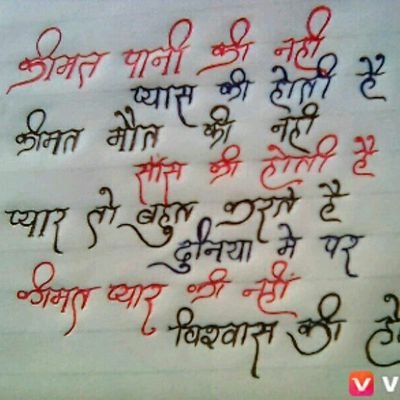 कीमत पानी की नही
प्यास की होती है
कीमत मौत की नही
सॉस की होती है
प्यार तो बहुत करते है
दुनिया मे पर
कीमत प्यार की नहीं
विश्वास की है
V